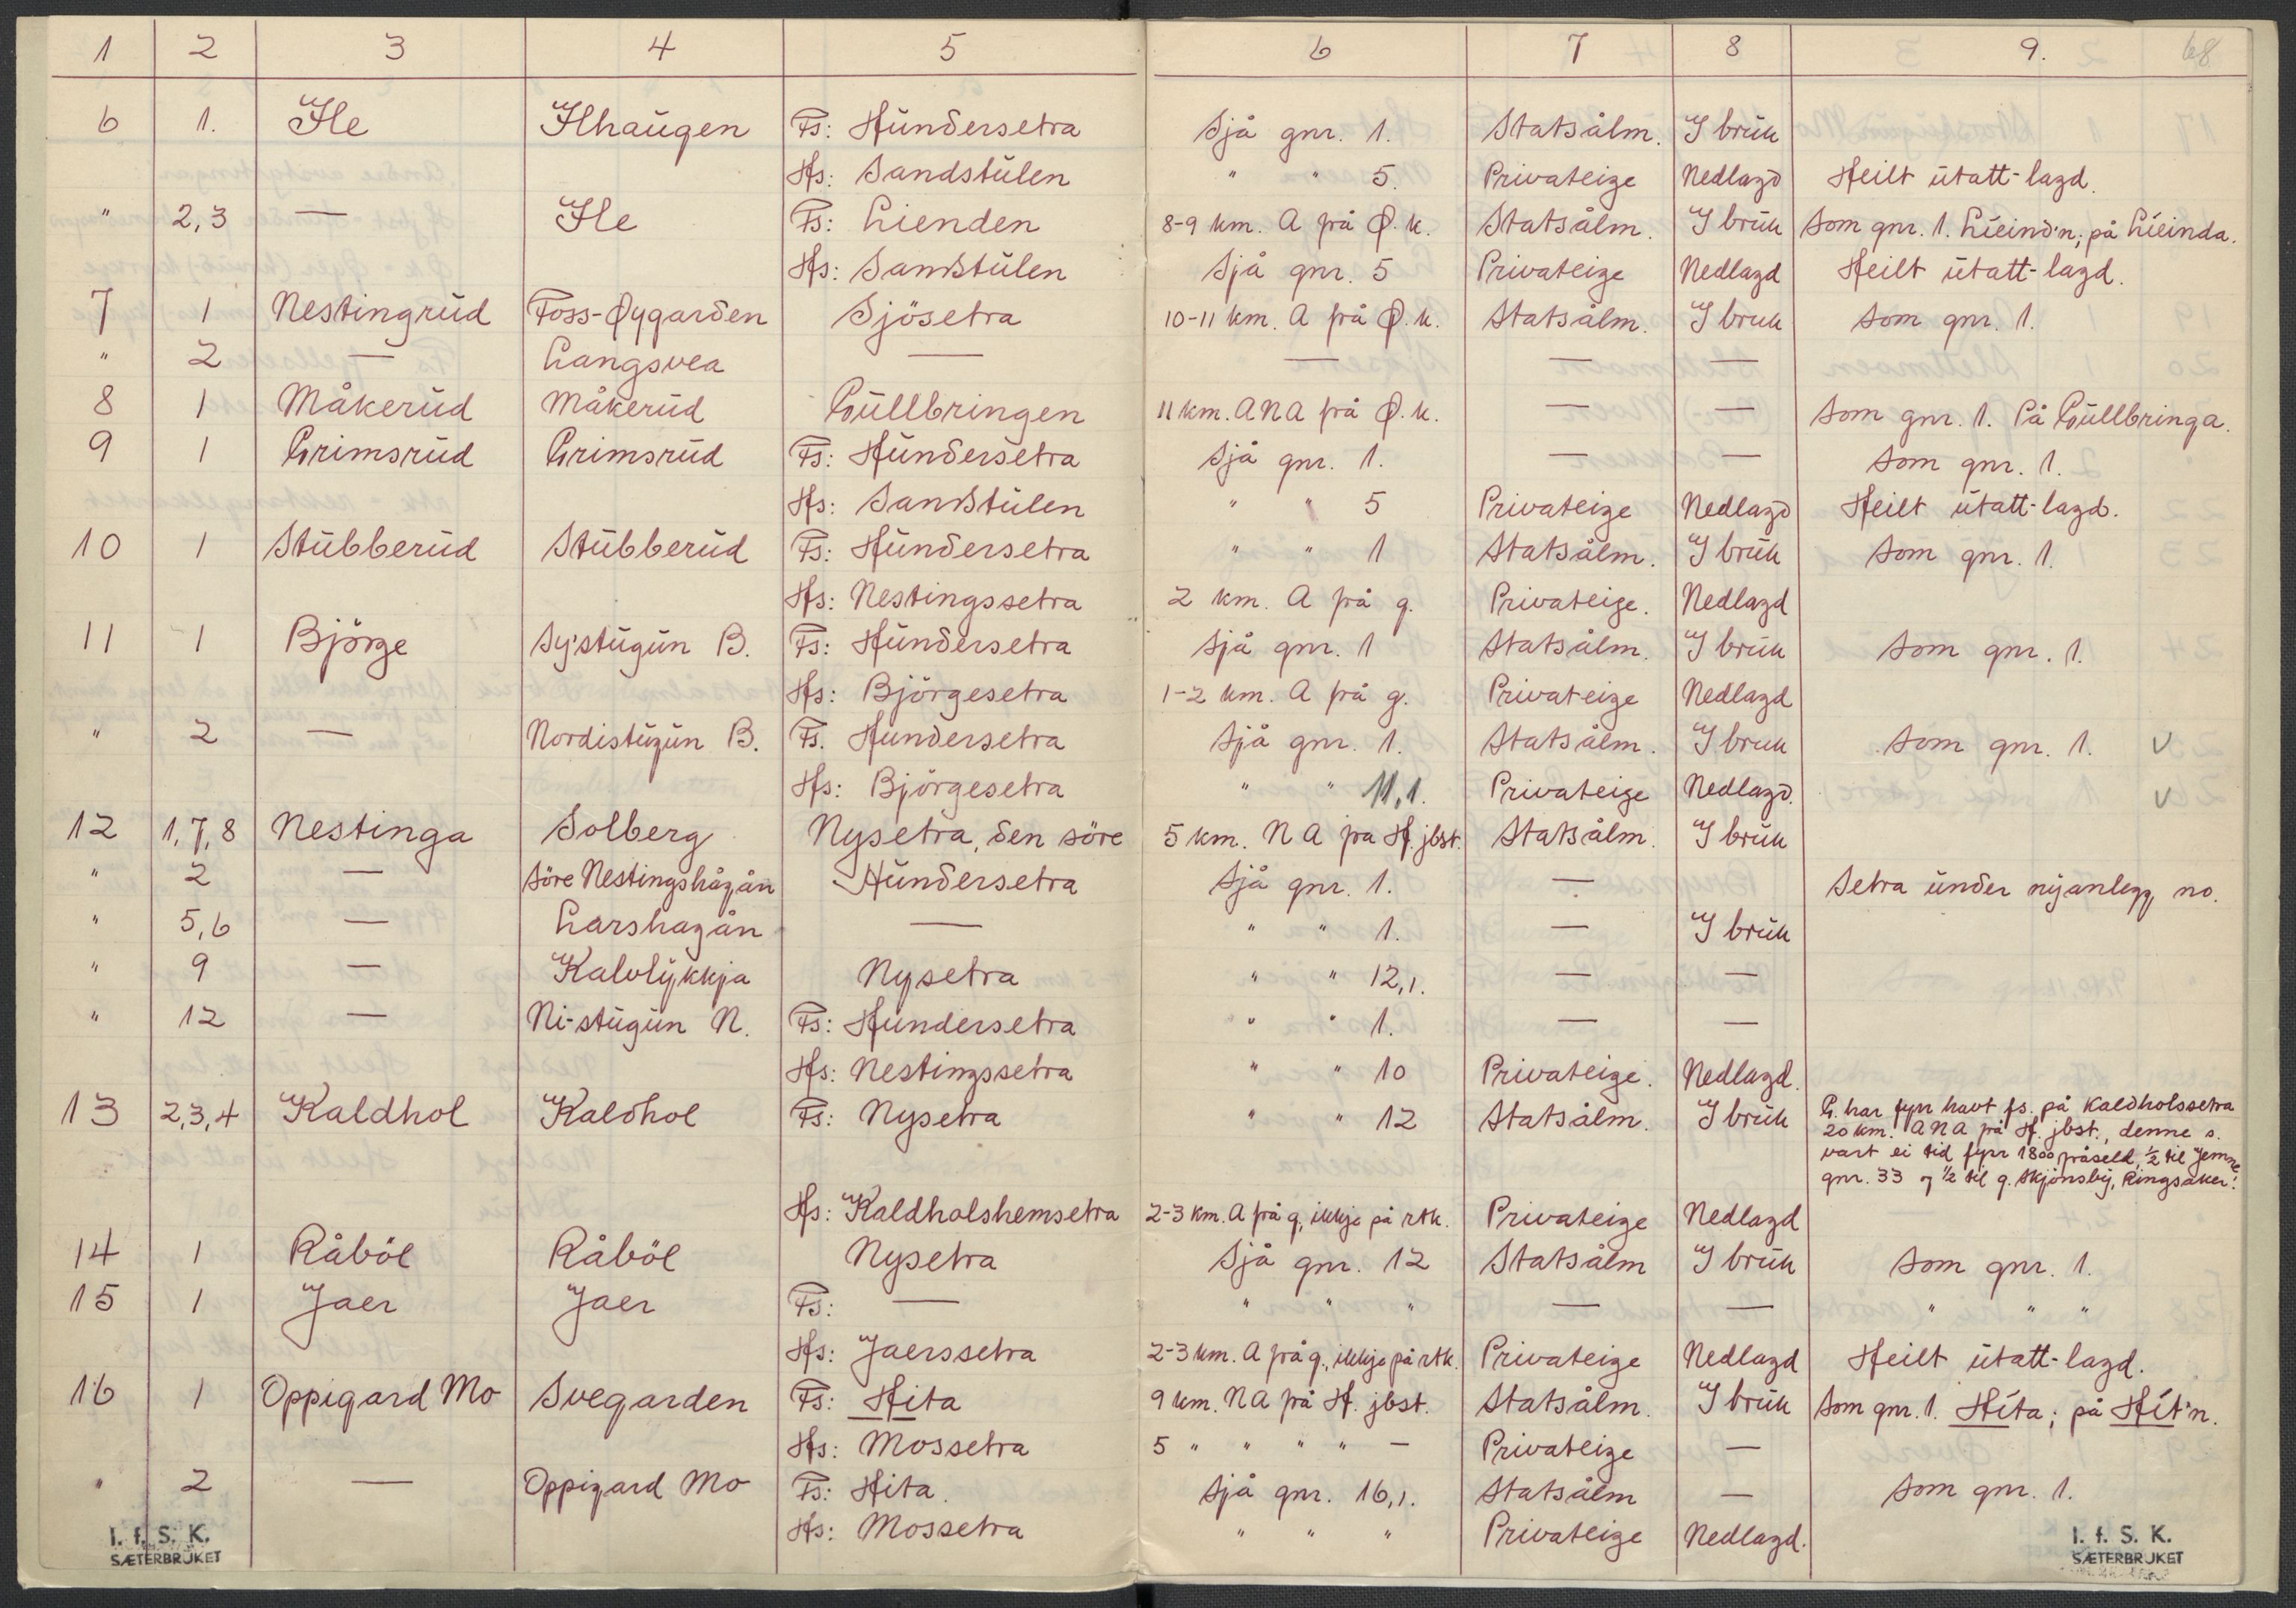 1 2 3 4 5 6 7 8 9. 68
6 1. Ile Ilhaugen Fs: Hundersetra Sjå gnr. 1. Statsålm. I bruk
Hs: Sandstulen " " 5. Privateige Nedlagd Heilt utatt-lagd.
" 2,3 — Ile Fs: Lienden 8-9 km. A frå Ø.k. Statsålm. I bruk Som gnr. 1. Líeind'n; på Líeinda.
Hs: Sandstulen Sjå gnr. 5 Privateige Nedlagd Heilt utatt-lagd.
7 1 Nestingrud Foss-Øygarden Sjösetra 10-11 km. A frå Ø.k. Statsålm. I bruk Som gnr. 1.
" 2 — Langsvea — — — —
8 1 Måkerud Måkerud Gullbringen 11 km. ANA frå Ø.k. — — Som gnr. 1. På Gullbringa.
9 1 Grimsrud Grimsrud Fs: Hundersetra Sjå gnr. 1. — — Som gnr. 1.
Hs: Sandstulen " " 5 Privateige Nedlagd Heilt utatt-lagd.
10 1 Stubberud Stubberud Fs: Hundersetra " " 1 Statsålm. I bruk Som gnr. 1.
Hs: Nestingssetra 2 km. A frå g. Privateige. Nedlagd
11 1 Björge Sy'stugun B. Fs: Hundersetra Sjå gnr. 1 Statsålm. I bruk Som gnr. 1.
Hs: Björgesetra 1-2 km. A frå g. Privateige Nedlagd
" 2 — Nordistugun B. Fs. Hundersetra Sjå gnr. 1. Statsålm. I bruk Som gnr. 1. V
Hs: Björgesetra " " 11,1. Privateige Nedlagd. V
12 1,7,8 Nestinga Solberg Nysetra, den söre 5 km. NA fra H. jbst. Statsålm. I bruk
" 2 — Söre Nestingshågån Hundersetra Sjå gnr. 1. — Setra under nyanlegg no.
" 5,6 — Larshagån — " " 1. — I bruk
" 9 — Kalvlykkja Nysetra " " 12,1. — —
" 12 — Ni-stugun N. Fs: Hundersetra " " 1. — —
Hs: Nestingssetra " " 10 Privateige. Nedlagd.
13 2,3,4 Kaldhol Kaldhol Fs: Nysetra " " 12 Statsålm. I bruk G. har fyrr havt fs. på Kaldholssetra
20 km. ANA frå H. jbst., denne s.
vart ei tid fyrr 1800 fråseld, ½ til Jemne
gnr. 33 og ½ til g. Skjönsby, Ringsaker.
Hs: Kaldholshemsetra 2-3 km. A frå g., ikkje på rtk. Privateige Nedlagd
14 1 Råböl Råböl Nysetra Sjå gnr. 12 Statsålm I bruk Som gnr. 1.
15 1 Jaer Jaer Fs: — " " " — — " " "
Hs: Jaerssetra 2-3 km. A frå g., ikkje på rtk. Privateige Nedlagd Heilt utatt-lagd.
16 1 Oppigard Mo Svegarden Fs: Hita 9 km. NA frå H. jbst. Statsålm. I bruk Som gnr. 1. Híta; på Hít'n.
Hs: Mossetra 5 " " " " — Privateige —
" 2 — Oppigard Mo Fs: Hita. Sjå gnr. 16,1. Statsålm — Som gnr. 1.
Hs: Mossetra " " " Privateige Nedlagd.
I. f. S. K.
SÆTERBRUKET
I. f. S. K.
SÆTERBRUKET